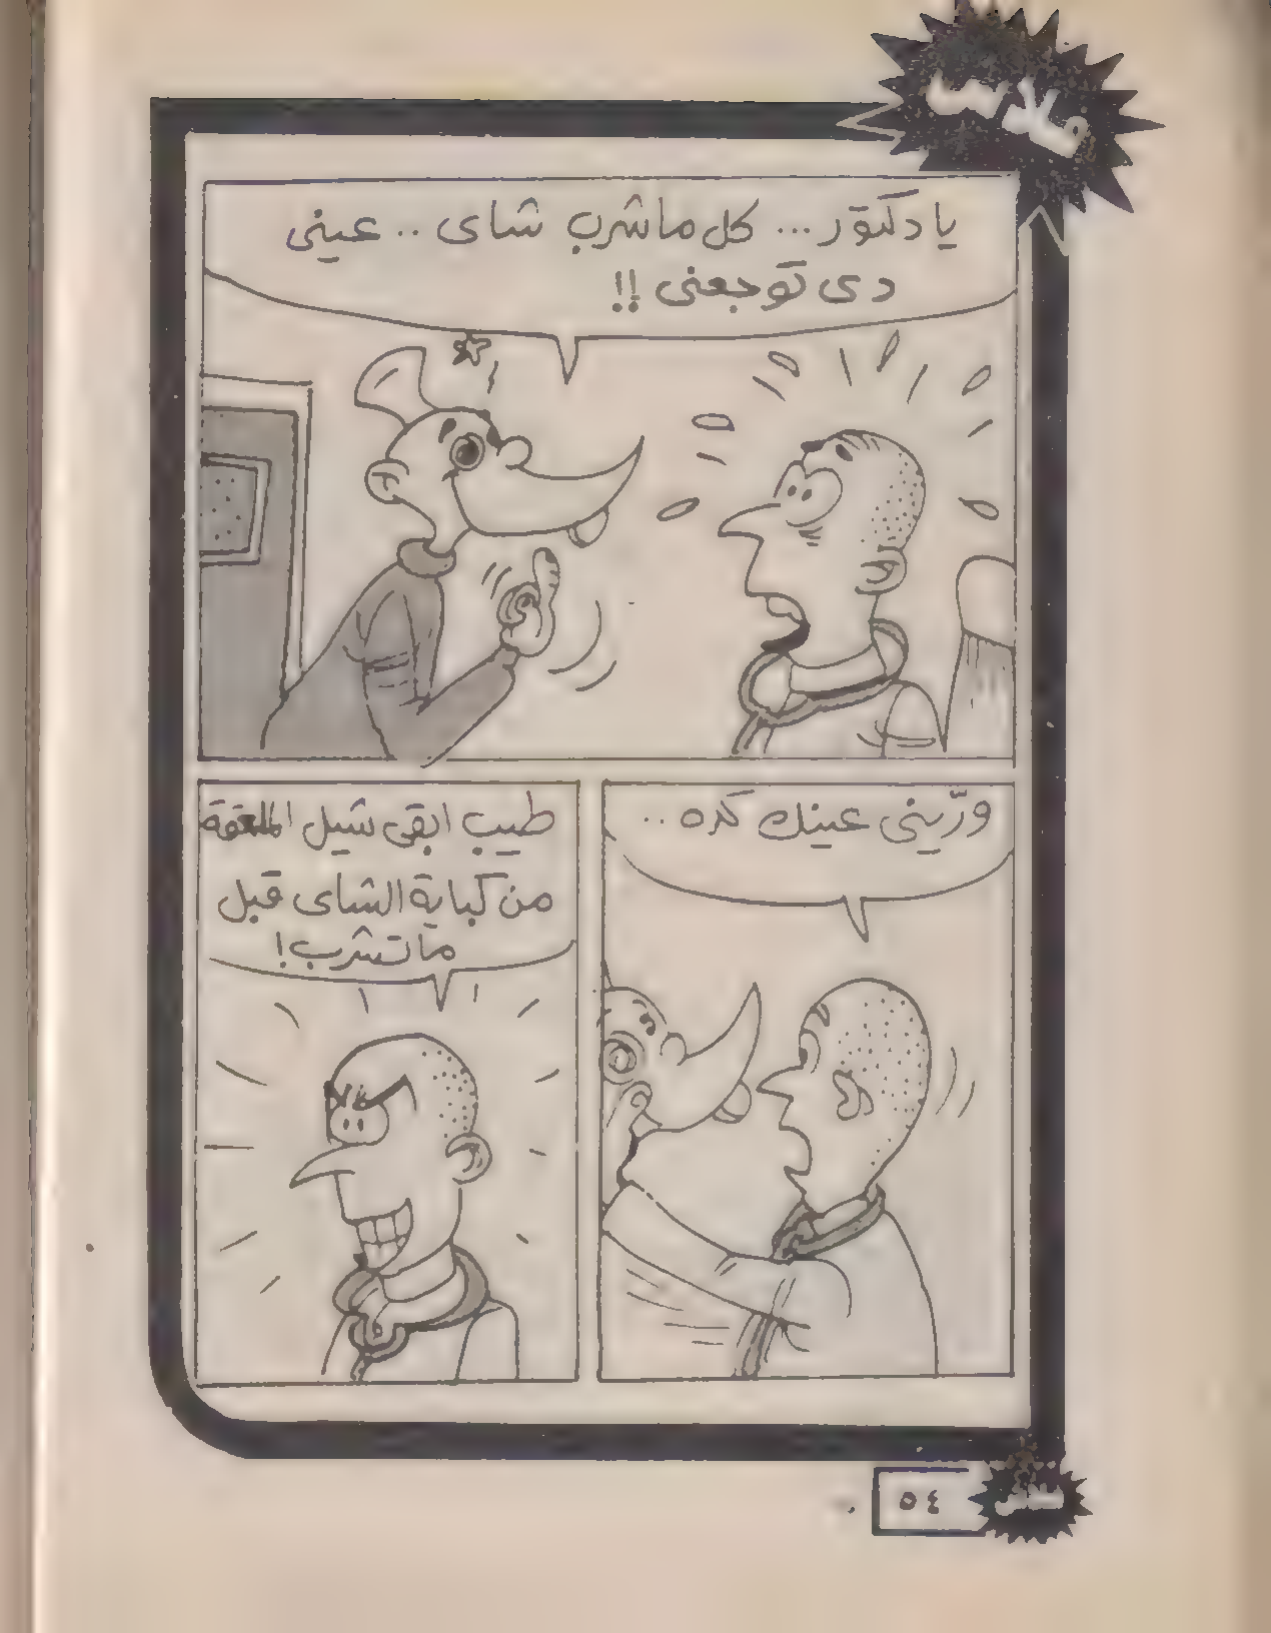 فلاس
يا دكتور... كل ماشرب شاى .. عينى
دى توجعنى !!
ورّينى عينك كده ..
طيب ابقى شيل الملعقة
من كباية الشاى قبل
ماتشرب!
٥٤